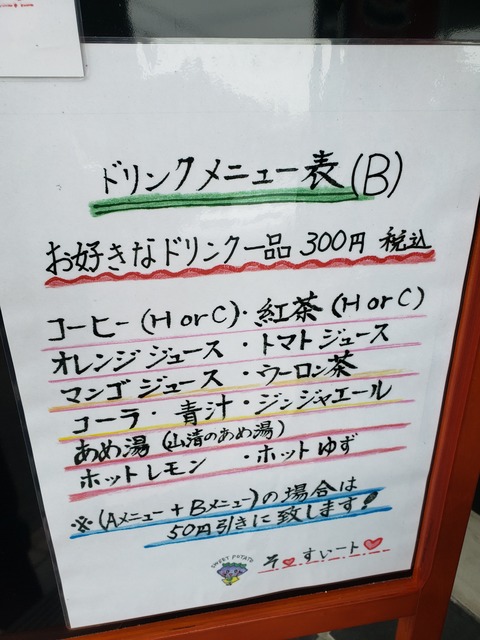 ドリンクメニュー表(B)
お好きなドリンク一品 300円 税込
コーヒー(H or C)・紅茶(H or C)
オレンジジュース ・トマトジュース
マンゴジュース ・ウーロン茶
コーラ・ 青汁・ジンジャエール
あめ湯(山清のあめ湯)
ホットレモン ・ホットゆず
・※(Aメニュー+Bメニュー)の場合は
50円引きに致します!
SWEET POTATO
そ♥すいート♥